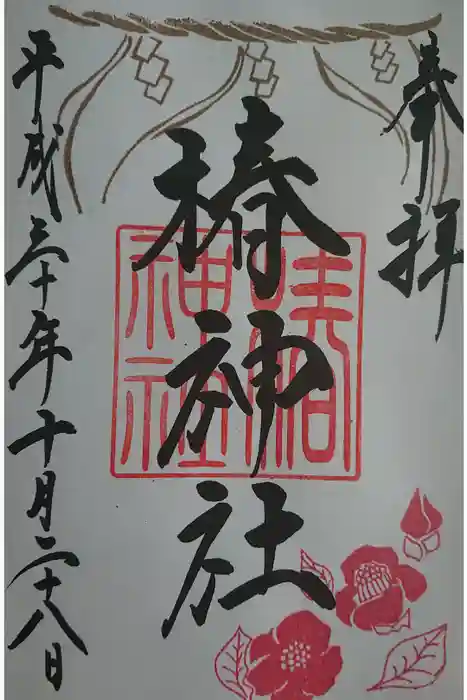 奉拝
椿神社
椿神社
平成三十年十月二十八日